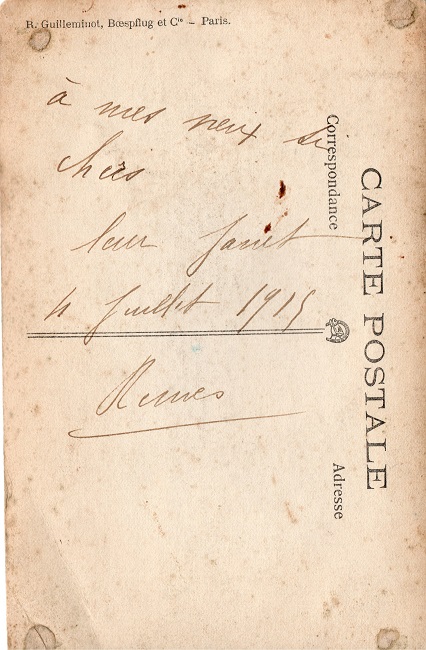 R. Guilleminot, Bœspflug et Cie – Paris.
à mes neux si
chers
leur
4 Juillet 1915
CARTE POSTALE
Correspondance
Adresse